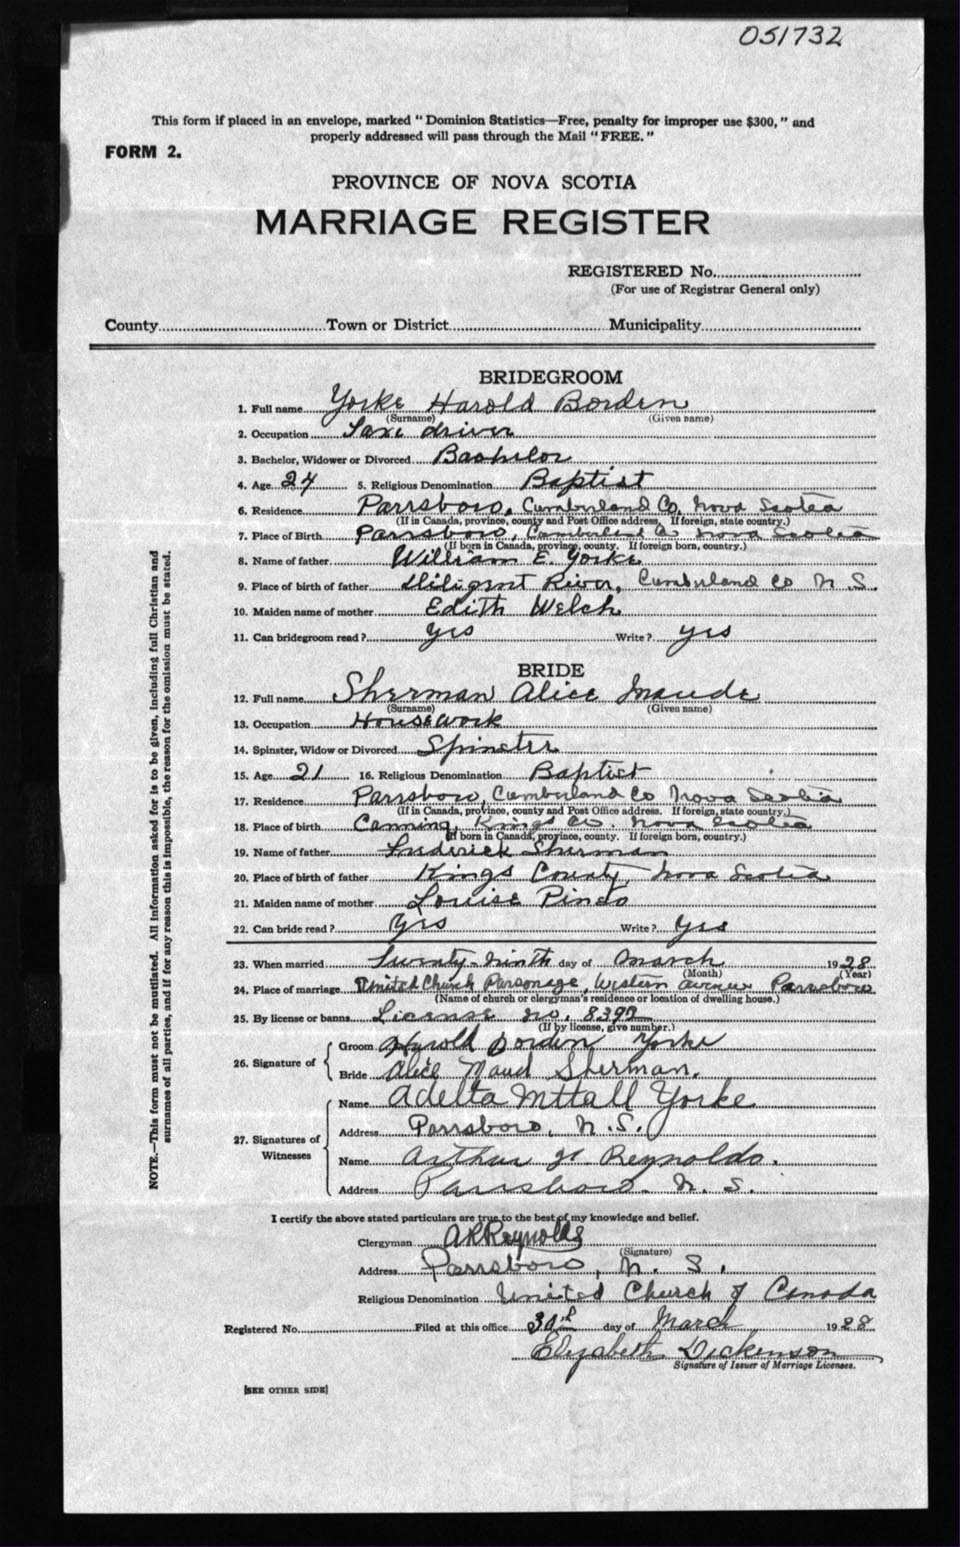 051732
This form if placed in an envelope, marked "Dominion Statistics—Free, penalty for improper use $300," and
properly addressed will pass through the Mail "FREE."
FORM 2.
PROVINCE OF NOVA SCOTIA
MARRIAGE REGISTER
REGISTERED No.
(For use of Registrar General only)
County Town or District Municipality
BRIDEGROOM
1. Full name Yorke Harold Borden
(Surname) (Given name)
2. Occupation Taxi driver
3. Bachelor, Widower or Divorced Bachelor
4. Age 24 5. Religious Denomination Baptist
6. Residence Parrsboro, Cumberland Co. Nova Scotia
(If in Canada, province, county and Post Office address. If foreign, state country.)
7. Place of Birth Parrsboro, Cumberland Co Nova Scotia
(If born in Canada, province, county. If foreign born, country.)
8. Name of father William E. Yorke
9. Place of birth of father Diligent River, Cumberland Co N.S.
10. Maiden name of mother Edith Welch
11. Can bridegroom read? Yes Write? yes
BRIDE
12. Full name Sherman Alice Maude
(Surname) (Given name)
13. Occupation Housework
14. Spinster, Widow or Divorced Spinster
15. Age 21 16. Religious Denomination Baptist
17. Residence Parrsboro, Cumberland Co Nova Scotia
(If in Canada, province, county and Post Office address. If foreign, state country.)
18. Place of birth Canning, Kings Co. Nova Scotia
(If born in Canada, province, county. If foreign born, country.)
19. Name of father Frederick Sherman
20. Place of birth of father Kings County, Nova Scotia
21. Maiden name of mother Louise
22. Can bride read? Yes Write? Yes
23. When married Twenty-ninth day of March 1928
(Month) (Year)
24. Place of marriage United Church Parsonage, Western Avenue Parrsboro
(Name of church or clergyman's residence or location of dwelling house.)
25. By license or banns License no. 8392
(If by license, give number.)
26. Signature of
Groom Harold Borden Yorke
Bride Alice Maud Sherman.
27. Signatures of Witnesses
Name Yorke
Address Parrsboro, N.S.
Name Arthur Reynolds.
Address Parrsboro N. S.
I certify the above stated particulars are true to the best of my knowledge and belief.
Clergyman A R Reynolds
(Signature)
Address Parrsboro, N. S.
Religious Denomination United Church of Canada
Registered No. Filed at this office day of March 1928
Elizabeth Dickenson
Signature of Issuer of Marriage Licenses.
[SEE OTHER SIDE]
NOTE.—This form must not be mutilated. All information asked for is to be given, including full Christian and
surnames of all parties, and if for any reason this is impossible, the reason for the omission must be stated.